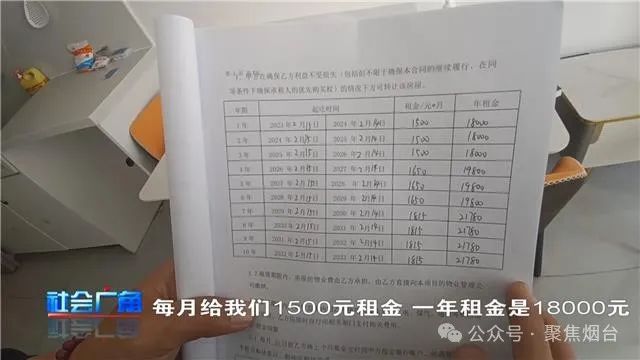 在确保乙方利益不受损失（包括但不限于确保本合同的继续履行，在同
等条件下确保承租人的优先购买权）的情况下方可转让该房屋。
年限 起止时间 租金/元*月 年租金
1年 2023年2月15日 2024年2月14日 1500 18000
2年 2024年2月15日 2025年2月14日 1500 18000
3年 2025年2月15日 2026年2月14日 1500 18000
4年 2026年2月15日 2027年2月14日 1650 19800
5年 2027年2月15日 2028年2月14日 1650 19800
6年 2028年2月15日 2029年2月14日 1650 19800
7年 2029年2月15日 2030年2月14日 1815 21780
8年 2030年2月15日 2031年2月14日 1815 21780
9年 2031年2月15日 2032年2月14日 1815 21780
10年 2032年2月15日 2033年2月14日 1815 21780
租赁期限内，房屋的物业费由乙方承担，由乙方直接向本项目的物业管理公
司缴纳。
社会广角
每月给我们1500元租金 一年租金是18000元
公众号·聚焦烟台